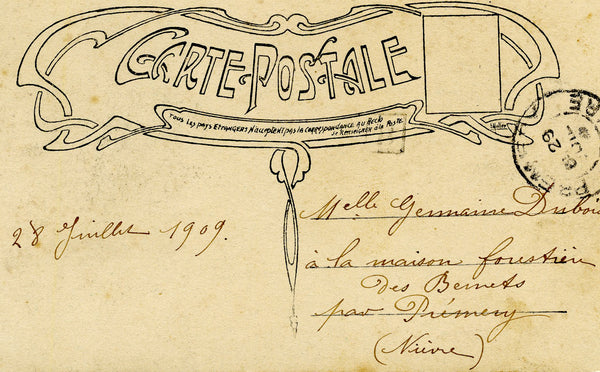 CARTE POSTALE
TOUS LES PAYS ETRANGERS N'ACCEPTENT PAS LA CORRESPONDANCE AU RECTO
SE RENSEIGNER A LA POSTE
29
28 Juillet 1909.
Melle Germaine Dubou
à la maison forestière
des Bernets
par Prémery
(Nièvre)